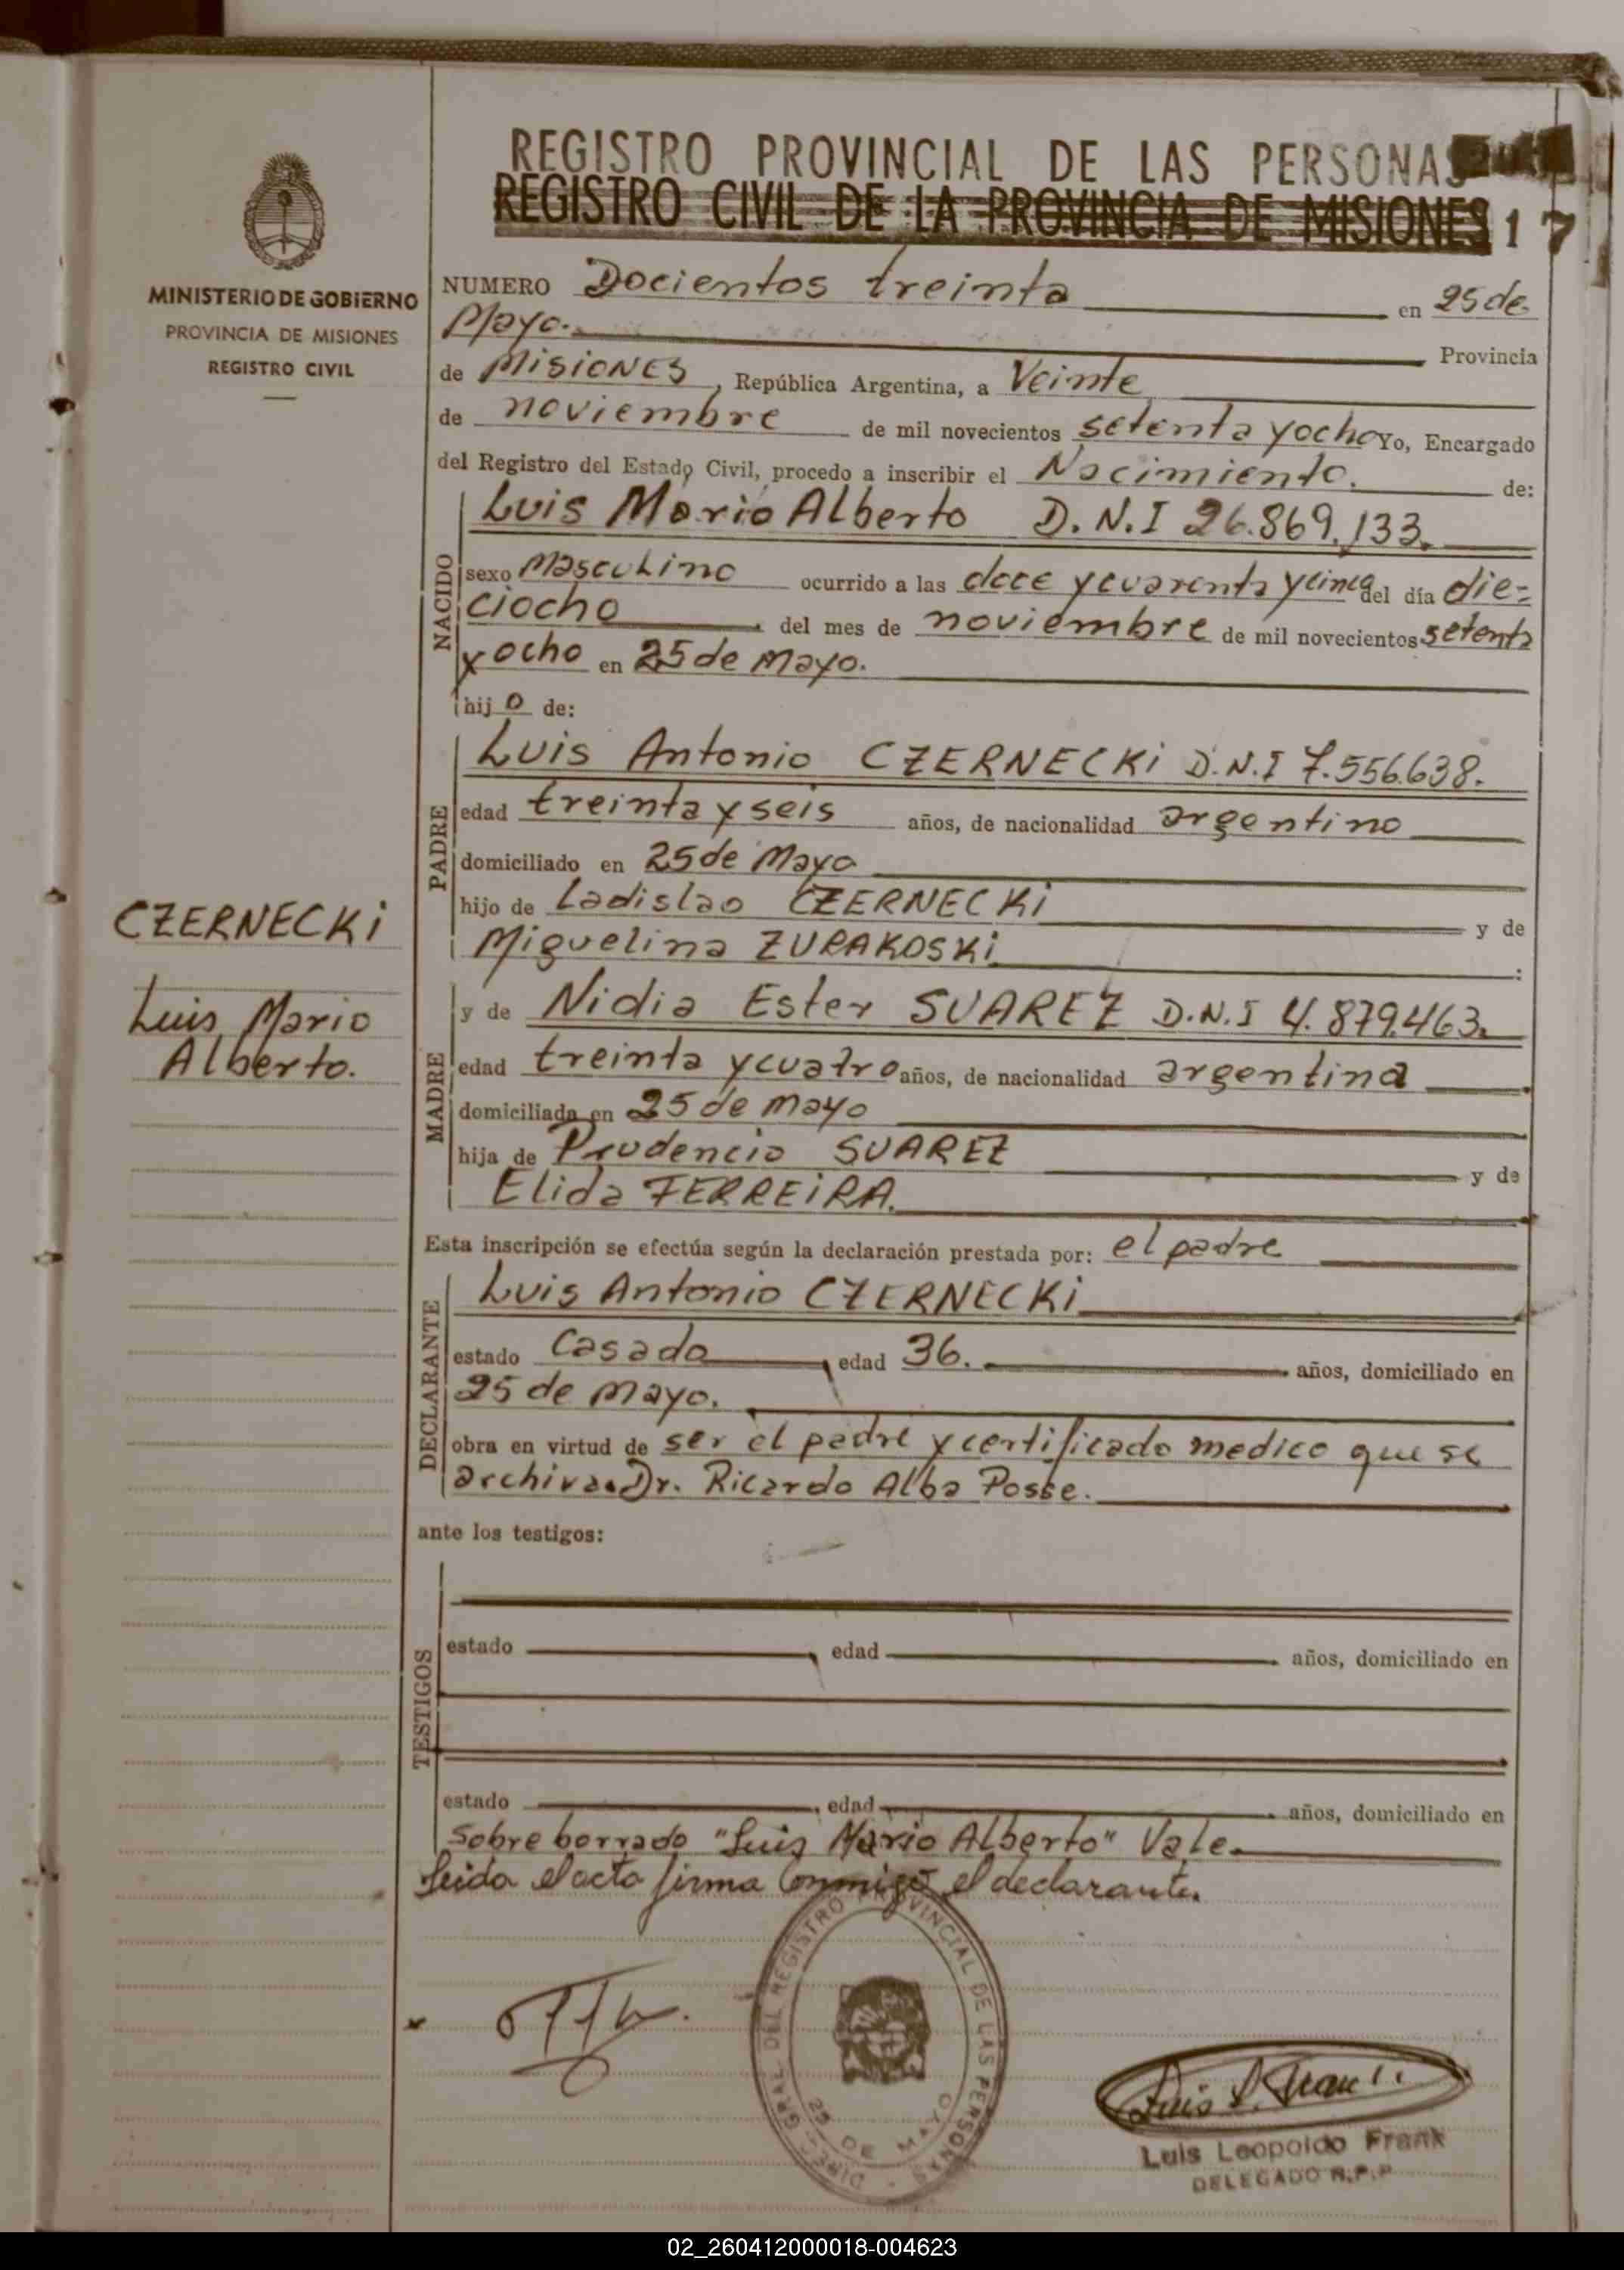 REGISTRO PROVINCIAL DE LAS PERSONAS
REGISTRO CIVIL DE LA PROVINCIA DE MISIONES 17
MINISTERIO DE GOBIERNO
PROVINCIA DE MISIONES
REGISTRO CIVIL
NUMERO Docientos treinta en 25 de
Mayo. Provincia
de Misiones, República Argentina, a Veinte
de noviembre de mil novecientos setenta y ocho Yo, Encargado
del Registro del Estado Civil, procedo a inscribir el Nacimiento. de:
NACIDO
Luis Mario Alberto D.N.I 26.869.133.
sexo Masculino ocurrido a las doce y cuarenta y cinco del día die=
ciocho del mes de noviembre de mil novecientos setenta
y ocho en 25 de Mayo.
hijo de:
PADRE
Luis Antonio CZERNECKi D.N.I 7.556.638.
edad treinta y seis años, de nacionalidad argentino
domiciliado en 25 de Mayo
hijo de Ladislao CZERNECKi y de
Miguelina ZURAKOSKi :
CZERNECKi
Luis Mario
Alberto.
MADRE
y de Nidia Ester SUAREZ D.N.I 4.879.463.
edad treinta y cuatro años, de nacionalidad argentina
domiciliada en 25 de Mayo
hija de Prudencio SUAREZ y de
Elida FERREiRA.
Esta inscripción se efectúa según la declaración prestada por: el padre
DECLARANTE
Luis Antonio CZERNECKi
estado Casado, edad 36. años, domiciliado en
25 de Mayo.
obra en virtud de ser el padre y certificado medico que se
archiva. Dr. Ricardo Alba Posse.
ante los testigos:
TESTIGOS
estado , edad años, domiciliado en
estado , edad años, domiciliado en
Sobre borrado "Luis Mario Alberto" Vale.
Leida el acta firma Conmigo el declarante.
DIREC. GRAL. DEL REGISTRO PROVINCIAL DE LAS PERSONAS
25 DE MAYO
Luis L. Frank
Luis Leopoldo Frank
DELEGADO R.P.P
02_260412000018-004623